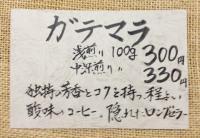 ガテマラ
浅煎り 100g 300円
中深煎り 〃 330円
独特の香とコクを持つ程よい
酸味のコーヒー、隠れたロングセラー